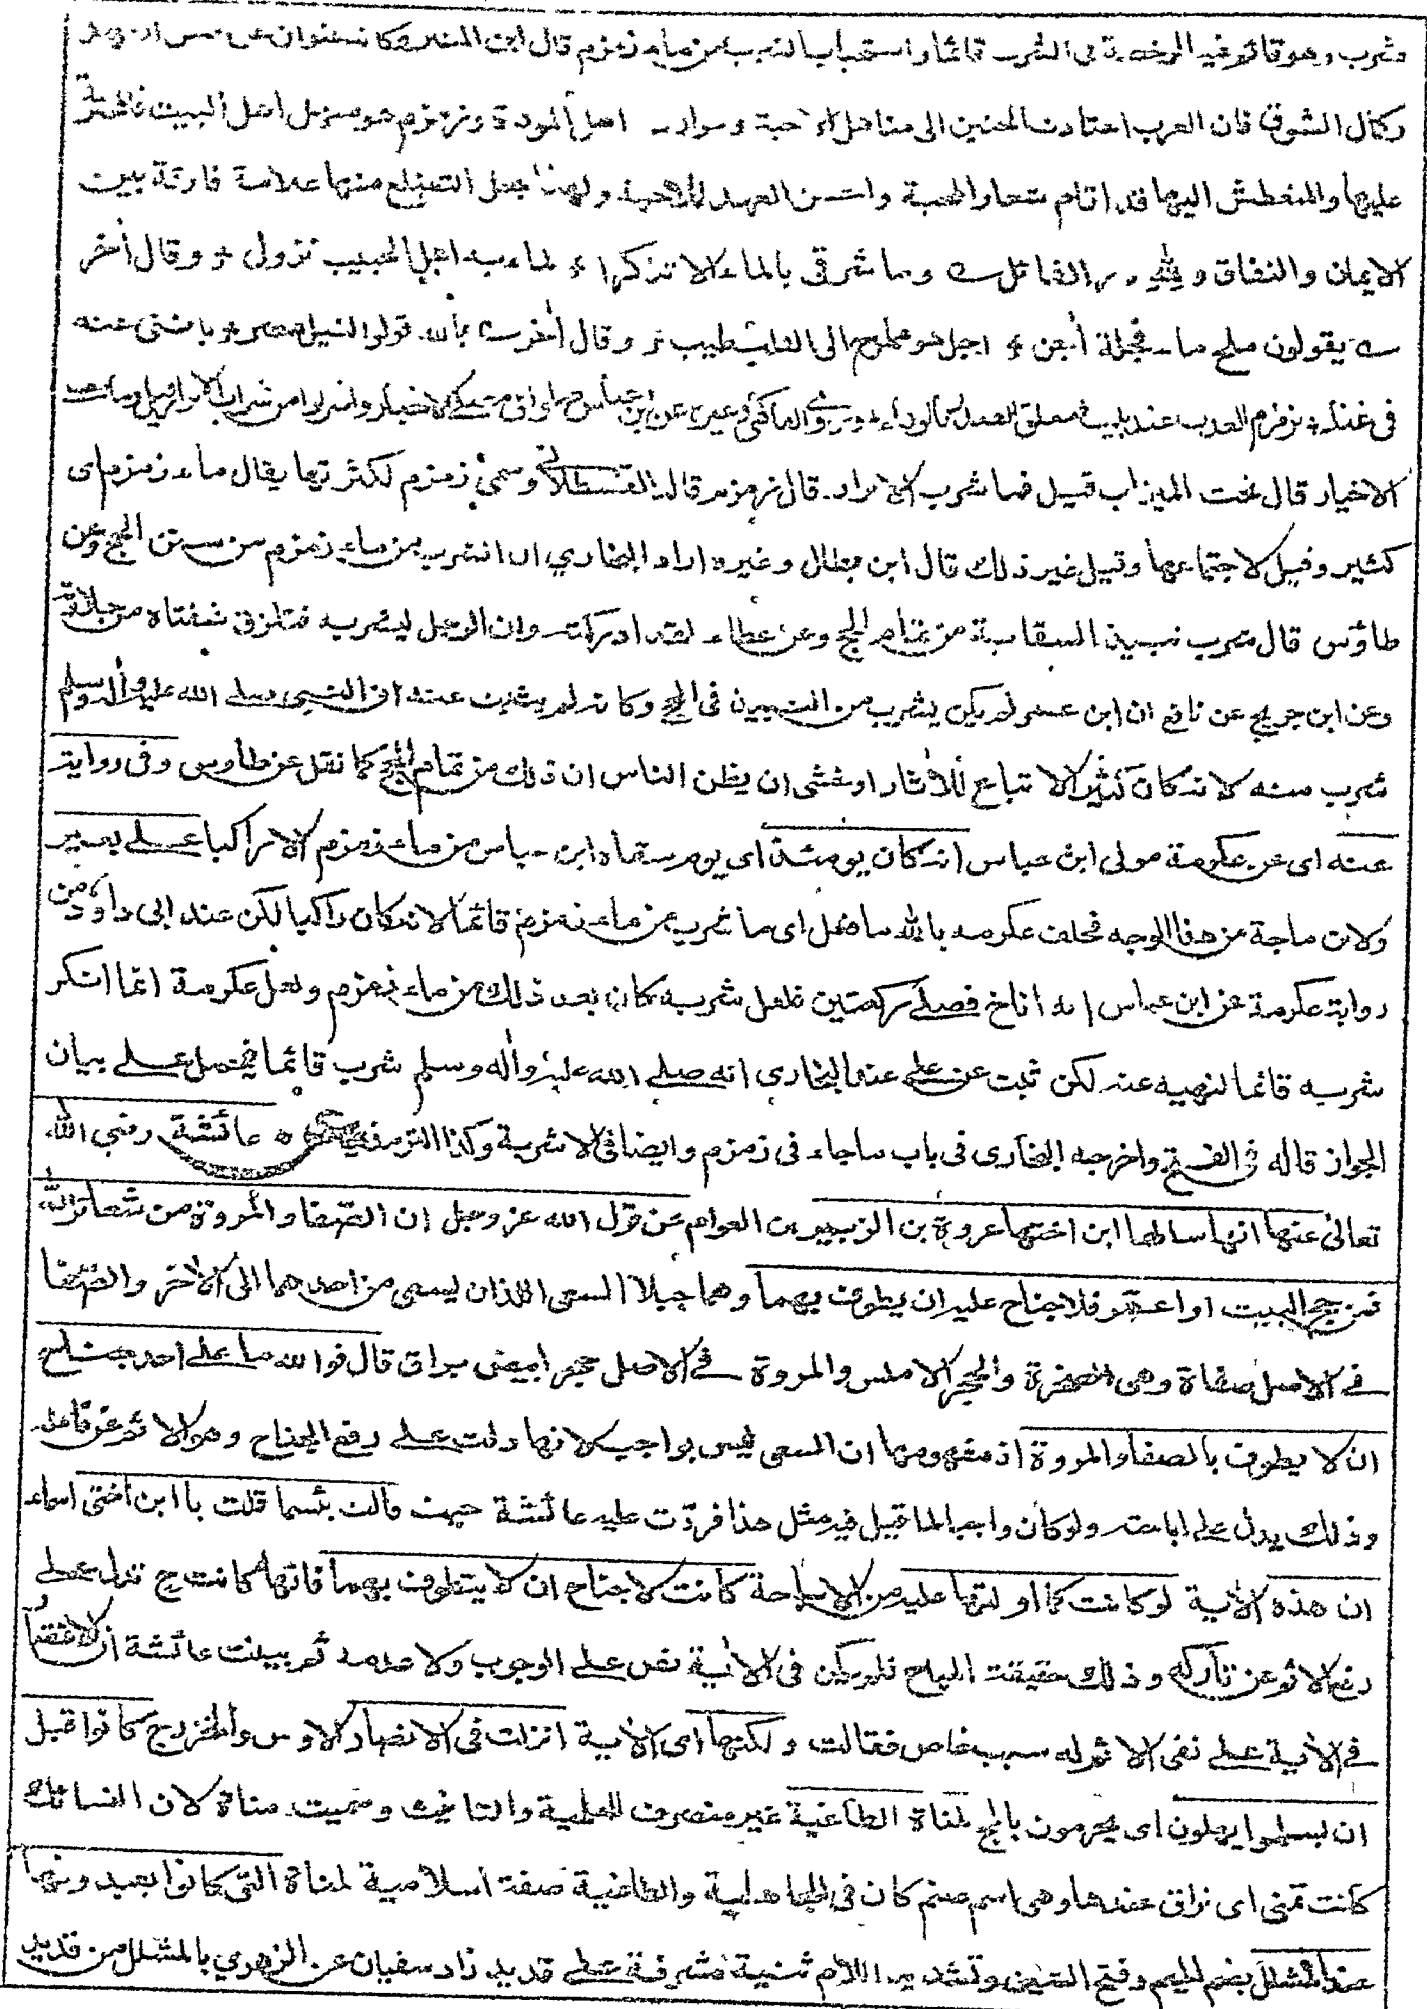 فشرب وهو قائم فيه الرخصة في الشرب قائما واستحباب الشرب من ماء زمزم قال ابن المنير وكانه عنوان عن حسن العهد
وكمال الشوق فان العرب اعتادت الحنين الى مناهل الاحبة وموارد اهل المودة وزمزم هو منزل اهل البيت فالمتحرق
عليها والمتعطش اليها قد اقام شعار المحبة واحسن العهد للاحبة ولهذا جعل التضلع منها علامة فارقة بين
الايمان والنفاق ولله در القائل وما شرقى بالماء الا تذكرا لماء به اهل الحبيب نزول وقال أخر
يقولون ملح ماء فجلة أجن اجل هو مملوح الى القلب طيب وقال أخر بالله قولوا النيل مصر باننى عنه
فى غناء بزمزم العذب عند بيت وغيره عن ابن عباس صلوا فى مصلى الاخيار واشربوا من شراب الابرار
الاخيار قال تحت الميزاب قيل فما شراب الابرار قال زمزم قال القسطلانى وسمى زمزم لكثرتها يقال ماء زمزم اى
كثير وقيل لاجتماعها وقيل غير ذلك قال ابن بطال وغيره اراد البخاري ان الشرب من ماء زمزم من سنن الحج وعن
طاؤس قال شرب نبيذ السقاية من تمام الحج وعن عطاء لقد ادركته وان الرجل ليشربه فتلزق شفتاه من حلاوته
وعن ابن جريج عن نافع ان ابن عمر لم يكن يشرب من النبيذ فى الحج وكانه لم يثبت عنده ان النبى صلے الله عليه وأله وسلم
شرب منه لانه كان كثير الاتباع للأثار او خشى ان يظن الناس ان ذلك من تمام الحج كما نقل عن طاوس وفى رواية
عنه اى عن عكرمة مولى ابن عباس انه كان يومئذ اى يوم سقاه ابن عباس من ماء زمزم الا راكبا علے بعير
ولابن ماجة من هذا الوجه فحلف عكرمه بالله ما فعل اى ما شرب من ماء زمزم قائما لانه كان راكبا لكن عند ابى داؤد من
رواية عكرمة عن ابن عباس انه اناخ فصلے ركعتين فلعل شربه كان بعد ذلك من ماء زمزم ولعل عكرمة انما انكر
شربه قائما لنهيه عنه لكن ثبت عن على عند البخارى انه صلے الله عليه وأله وسلم شرب قائما فيحمل علے بيان
الجواز قاله فى الفتح واخرجه البخارى فى باب ما جاء فى زمزم وايضا فى الاشربة وكذا الترمذى عائشة رضي الله
تعالى عنها انها سالها ابن اختها عروة بن الزبير بن العوام عن قول الله عز وجل ان الصفا والمروة من شعائر الله
فمن حج البيت او اعتمر فلا جناح عليه ان يطوف بهما وهما جبلا السعى اللذان يسعى من احدهما الى الأخر والصفا
فے الاصل صفاة وهى الصخرة والحجر الاملس والمروة فے الاصل حجر ابيض براق قال فوالله ما على احد جناح
ان لا يطوف بالصفا والمروة اذ مفهومها ان السعى ليس بواجب لانها دلت علے رفع الجناح وهو الاثم عن فاعله
وذلك يدل على اباحته ولو كان واجبا لما قيل فيه مثل هذا فردت عليه عائشة حيث قالت بئسما قلت يا ابن اختى اسماء
ان هذه الأية لو كانت كما اولتها عليه من الاباحة كانت لا جناح ان لا يتطوف بهما فانها كانت ح تدل على
رفع الاثم عن تاركه وذلك حقيقة المباح فلم يكن فى الأية نص علے الوجوب ولا عدمه ثم بينت عائشة ان الاقتصار
فے الأية علے نفى الاثم له سبب خاص فقالت ولكنها اى الأية انزلت فى الانصار الاوس والخزرج كانوا قبل
ان يسلموا يهلون اى يحرمون بالحج لمناة الطاغية غير منصرف للعلمية والتانيث وسميت مناة لان النسائك
كانت تمنى اى تراق عندها وهى اسم صنم كان فى الجاهلية والطاغية صفة اسلامية لمناة التى كانوا يعبدونها
عند المشلل بضم الميم وفتح الشين وتشديد اللام ثنية مشرفة علے قديد زاد سفيان عن الزهري بالمشلل من قديد